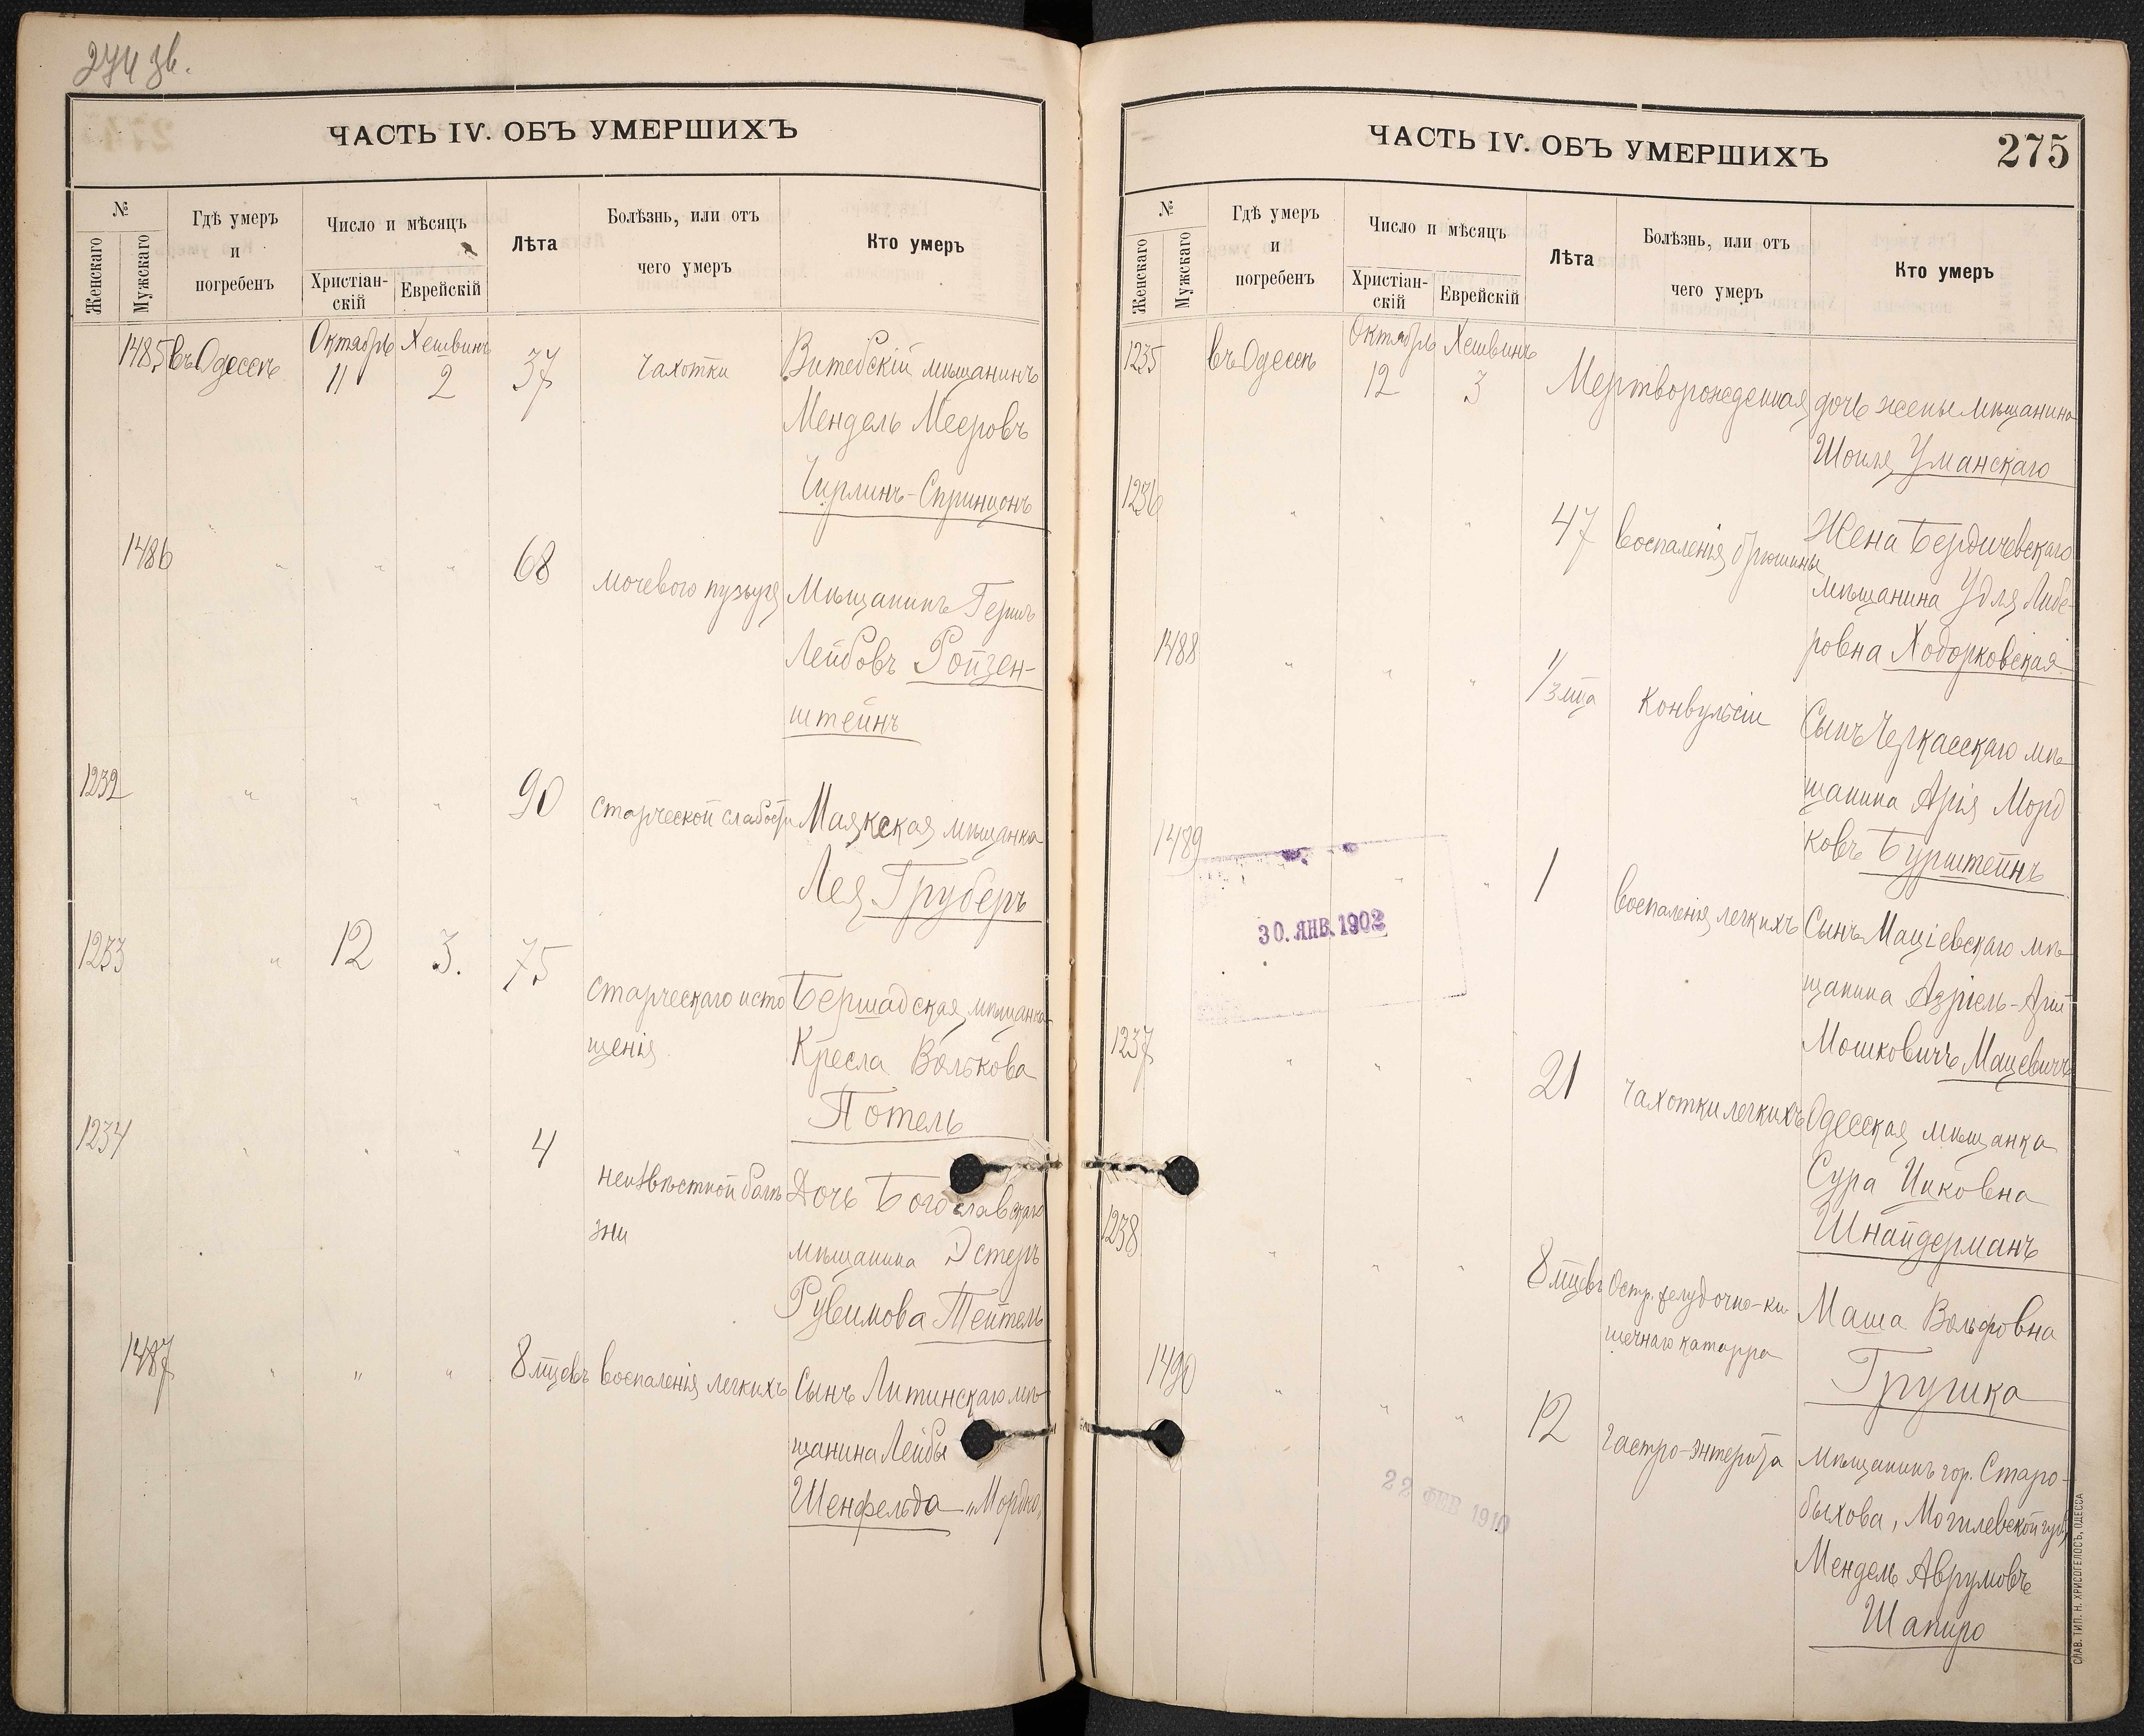 274 зв.
ЧАСТЬ IV. ОБЪ УМЕРШИХЪ
№
Женскаго
Мужскаго
Гдѣ умеръ
и
погребенъ
Число и мѣсяцъ
Христіан-
скій
Еврейскій
Лѣта
Болѣзнь, или отъ
чего умеръ
Кто умеръ
1485 въ Одессѣ Октябрь 11 Хешвинъ 2 37 чахотки Витебскій мѣщанинъ
Мендель Мееровъ
Чирлинъ-Спринцонъ
1486 " " " 68 мочевого пузыря Мѣщанинъ Гершъ
Лейбовъ Ройзен-
штейнъ
1232 " " " 90 старческой слабости Маякская мѣщанка
Лея Груберъ
1233 " 12 3. 75 старческаго исто Бершадская мѣщанка
щенія Кресла Волькова
Потель
1234 " " " 4 неизвѣстной болѣ Дочь Богославскаго
зни мѣщанина Эстеръ
Рувимова Тейтель
1487 " " " 8 мѣцевъ воспаленія легкихъ Сынъ Литинскаго мѣ-
щанина Лейбы
Шенфельда „Мордко„
ЧАСТЬ IV. ОБЪ УМЕРШИХЪ
275
№
Женскаго
Мужскаго
Гдѣ умеръ
и
погребенъ
Число и мѣсяцъ
Христіан-
скій
Еврейскій
Лѣта
Болѣзнь, или отъ
чего умеръ
Кто умеръ
1235 въ Одессѣ Октябрь 12 Хешвинъ 3 Мертворожденная дочь жены мѣщанина
Шоиля Уманскаго
1236 " " " 47 воспаленія брюшины Жена Бердичевскаго
мѣщанина Удля Либе-
ровна Ходорковская
1488 " " " 1/3 мца Конвульсіи Сынъ Черкасскаго мѣ
щанина Арія Морд
ковъ Бурштейнъ
1489 " " 1 воспаленія легкихъ Сынъ Маціевскаго мѣ
щанина Азріель-Арій
Мошковичъ Мацевичъ
30. ЯНВ. 1902
1237 " " " 21 чахотки легкихъ Одесская мѣщанка
Сура Ицковна
Шнайдерманъ
1238 " " " 8 мцевъ Остр. желудочно-ки- Маша Вольфовна
шечнаго катарра
Грушка
1490 " " " 12 гастро-энтерита Мѣщанинъ гор. Старо-
быхова, Могилевской губ,
Мендель Аврумовъ
Шапиро
22 ФЕВ 1910
СЛАВ. ТИП. Н. ХРИСОГЕЛОСЪ, ОДЕССА